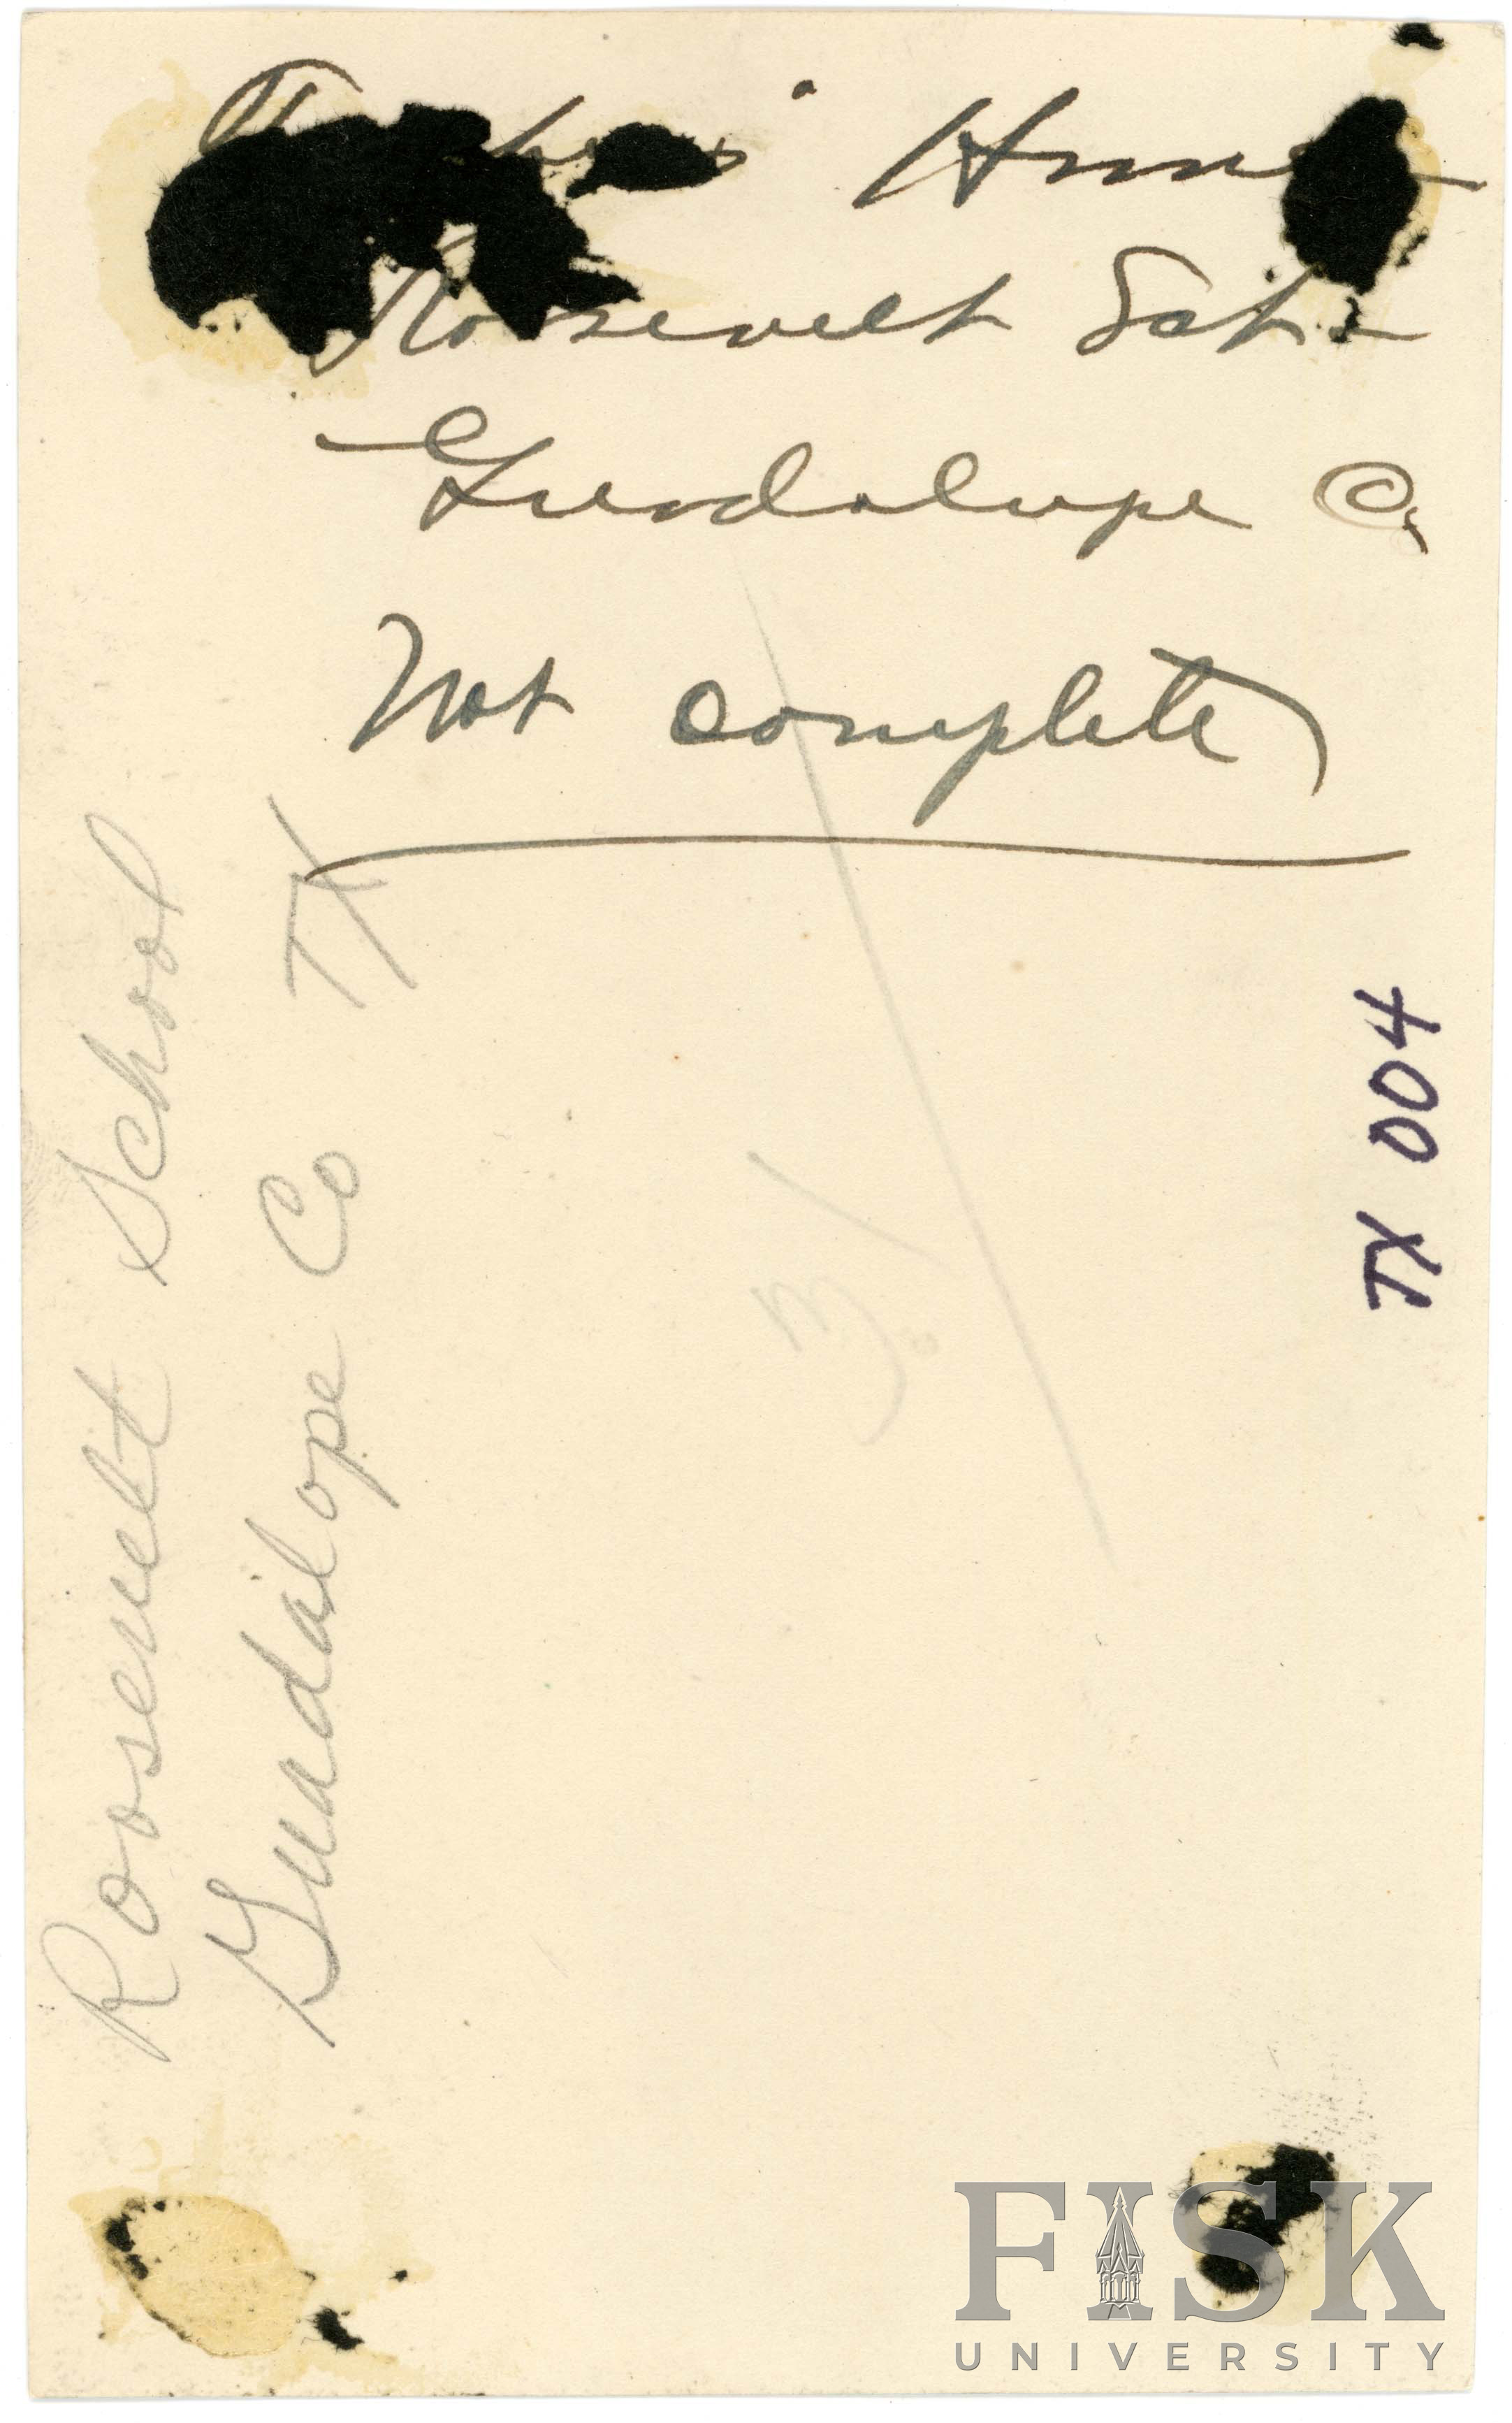 Roosevelt
Guadalupe Co
Not complete
Roosevelt School
Guadalope Co TX
TX 004
FISK
UNIVERSITY